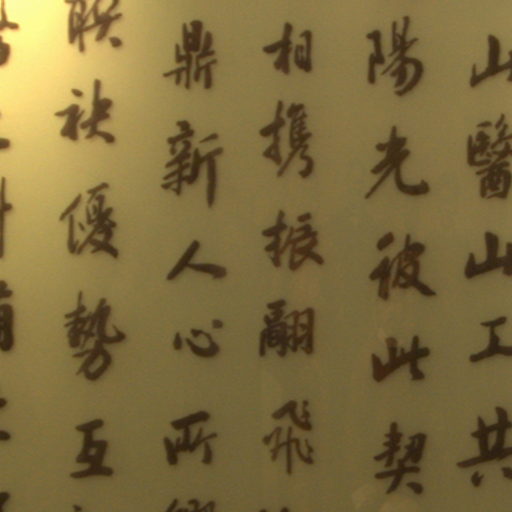 山醫山工共
陽光彼此契
相携振翮飛
鼎新人心所
联袂優勢互